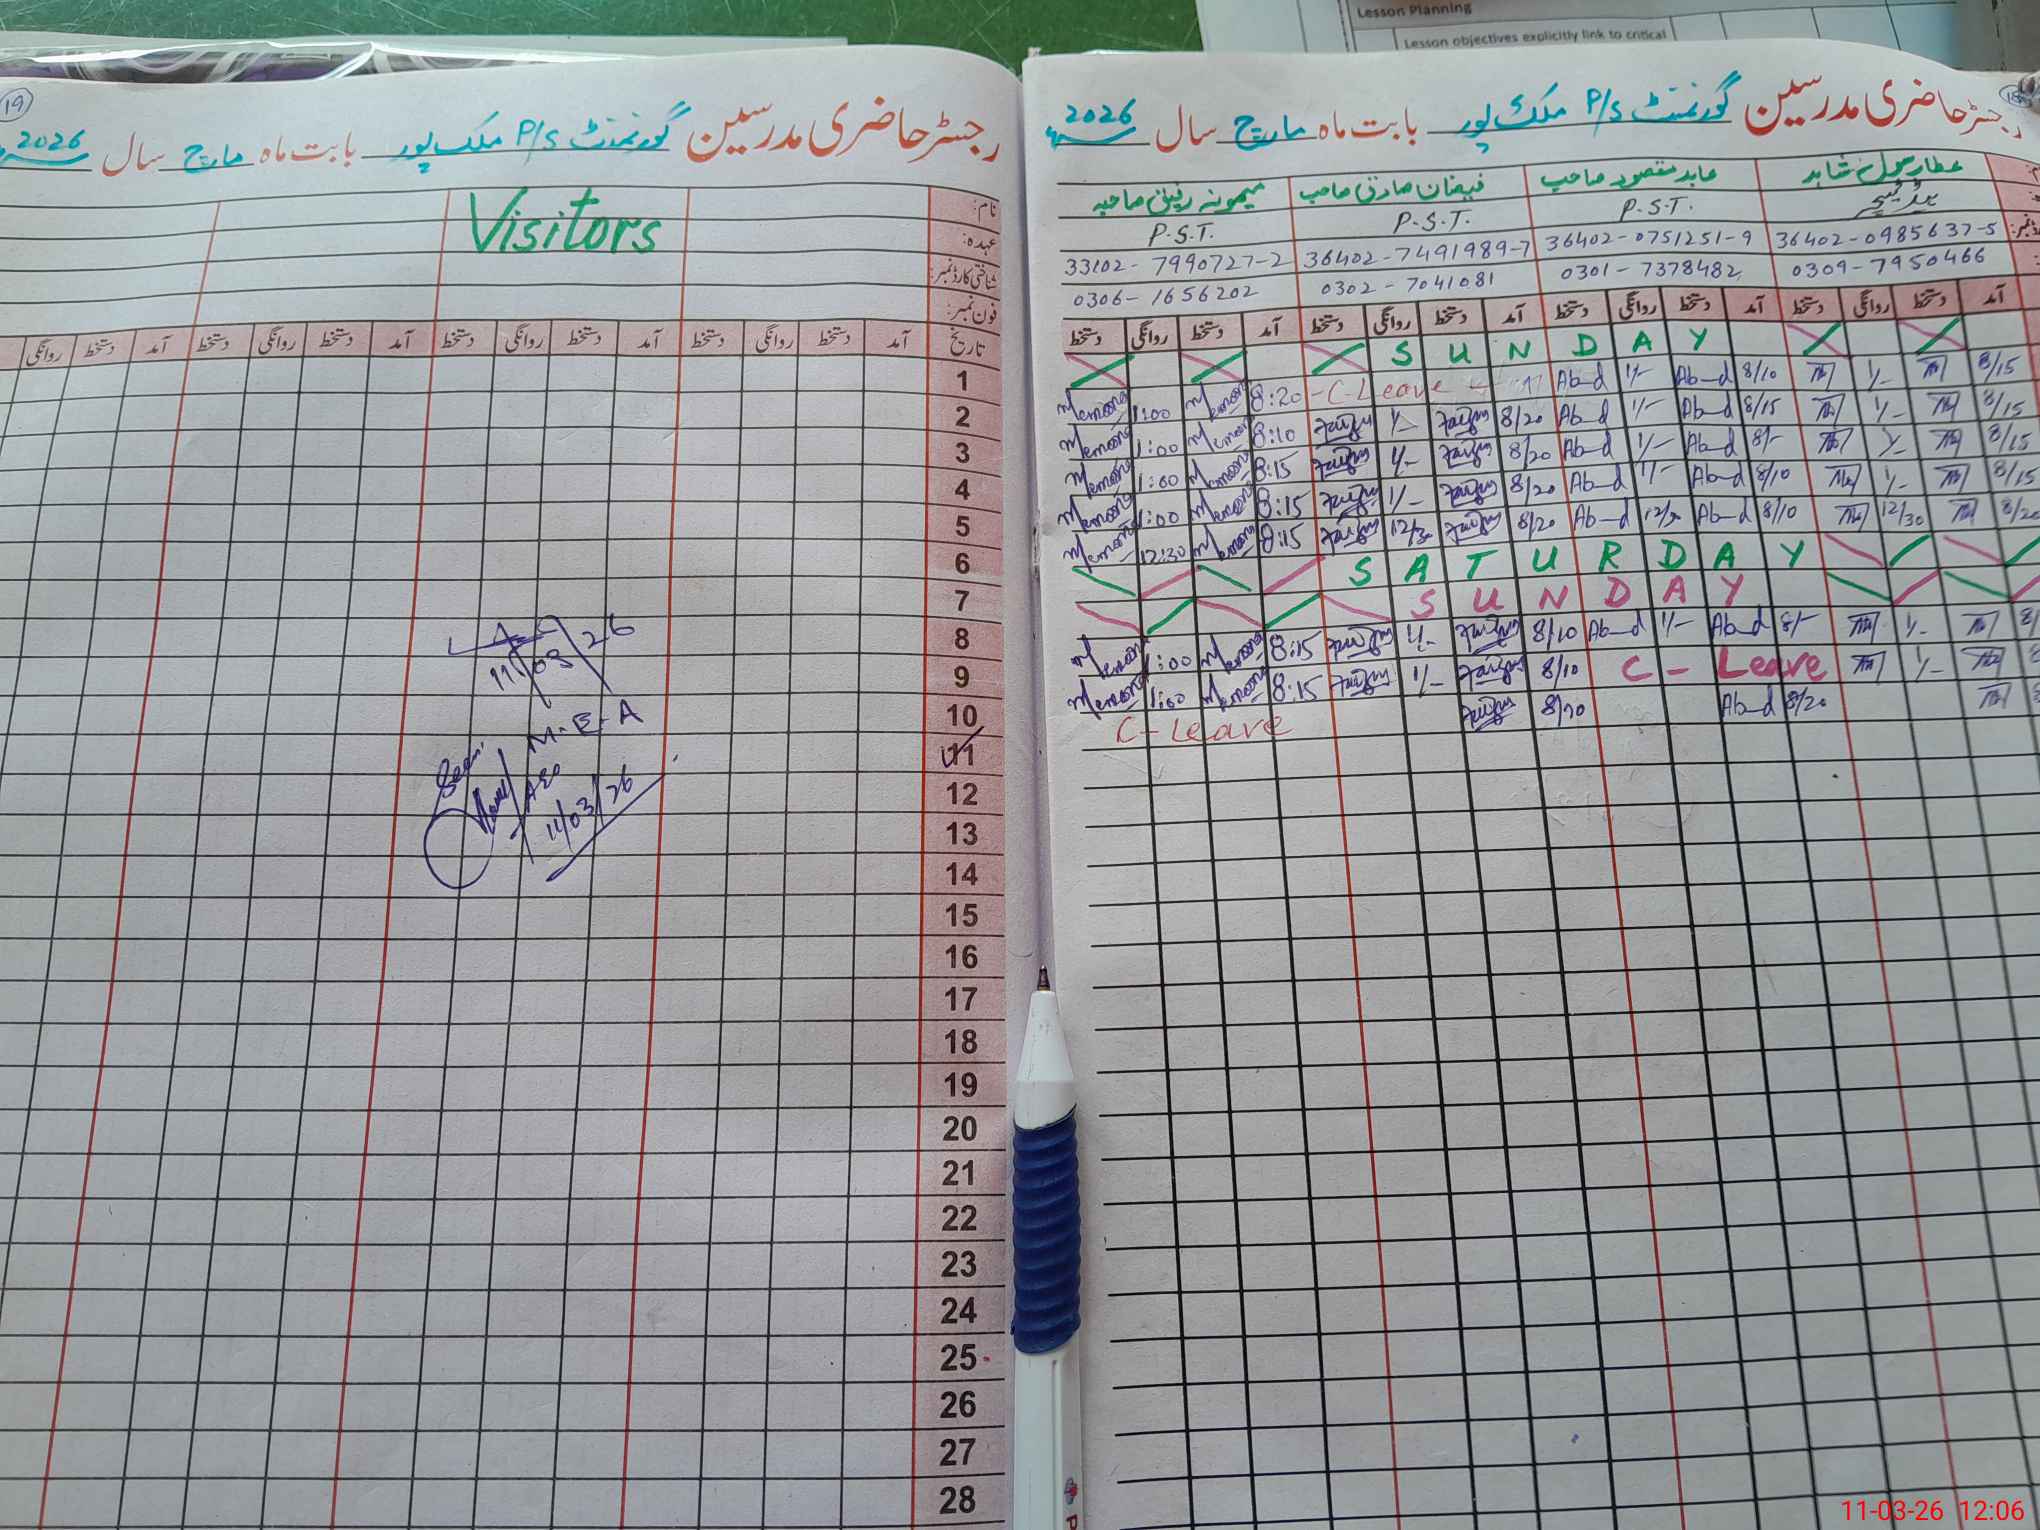 Lesson Planning
Lesson objectives explicitly link to critical
19
رجسٹر حاضری مدرسین گورنمنٹ P/S ملک پور بابت ماہ مارچ سال 2026
Visitors
نام:
عہدہ:
شناختی کارڈ نمبر:
فون نمبر:
تاریخ آمد دستخط روانگی دستخط آمد دستخط روانگی دستخط آمد دستخط روانگی دستخط آمد دستخط روانگی
1
2
3
4
5
6
7
8
9
10
11
12
13
14
15
16
17
18
19
20
21
22
23
24
25
26
27
28
11/03/26
M-E-A
Seen
AEO
11/03/26
رجسٹر حاضری مدرسین گورنمنٹ P/S ملک پور بابت ماہ مارچ سال 2026
عابد مقصود صاحب فیضان صادق صاحب میمونہ رفیق صاحبہ
P.S.T. P.S.T. P.S.T.
36402-0985637-5 36402-0751251-9 36402-7491989-7 33102-7990727-2
0309-7950466 0301-7378482 0302-7041081 0306-1656202
آمد دستخط روانگی دستخط آمد دستخط روانگی دستخط آمد دستخط روانگی دستخط آمد دستخط روانگی دستخط
SUNDAY
8/15 1/- 8/10 Abd 1/- Abd C-Leave 8:20 Memoona 1:00 Memoona
8/15 1/- 8/15 Abd 1/- Abd 8/20 1/- 8:10 Memoona 1:00 Memoona
8/15 1/- 8/- Abd 1/- Abd 8/20 1/- 8:15 Memoona 1:00 Memoona
8/15 1/- 8/10 Abd 1/- Abd 8/20 1/- 8:15 Memoona 1:00 Memoona
8/20 12/30 8/10 Abd 12/30 Abd 8/20 12/30 8:15 Memoona 12:30 Memoona
SATURDAY
SUNDAY
1/- 8/- Abd 1/- Abd 8/10 1/- 8:15 Memoona 1:00 Memoona
1/- C-Leave 8/10 1/- 8:15 Memoona 1:00 Memoona
8/20 Abd 8/20 C-Leave
11-03-26 12:06